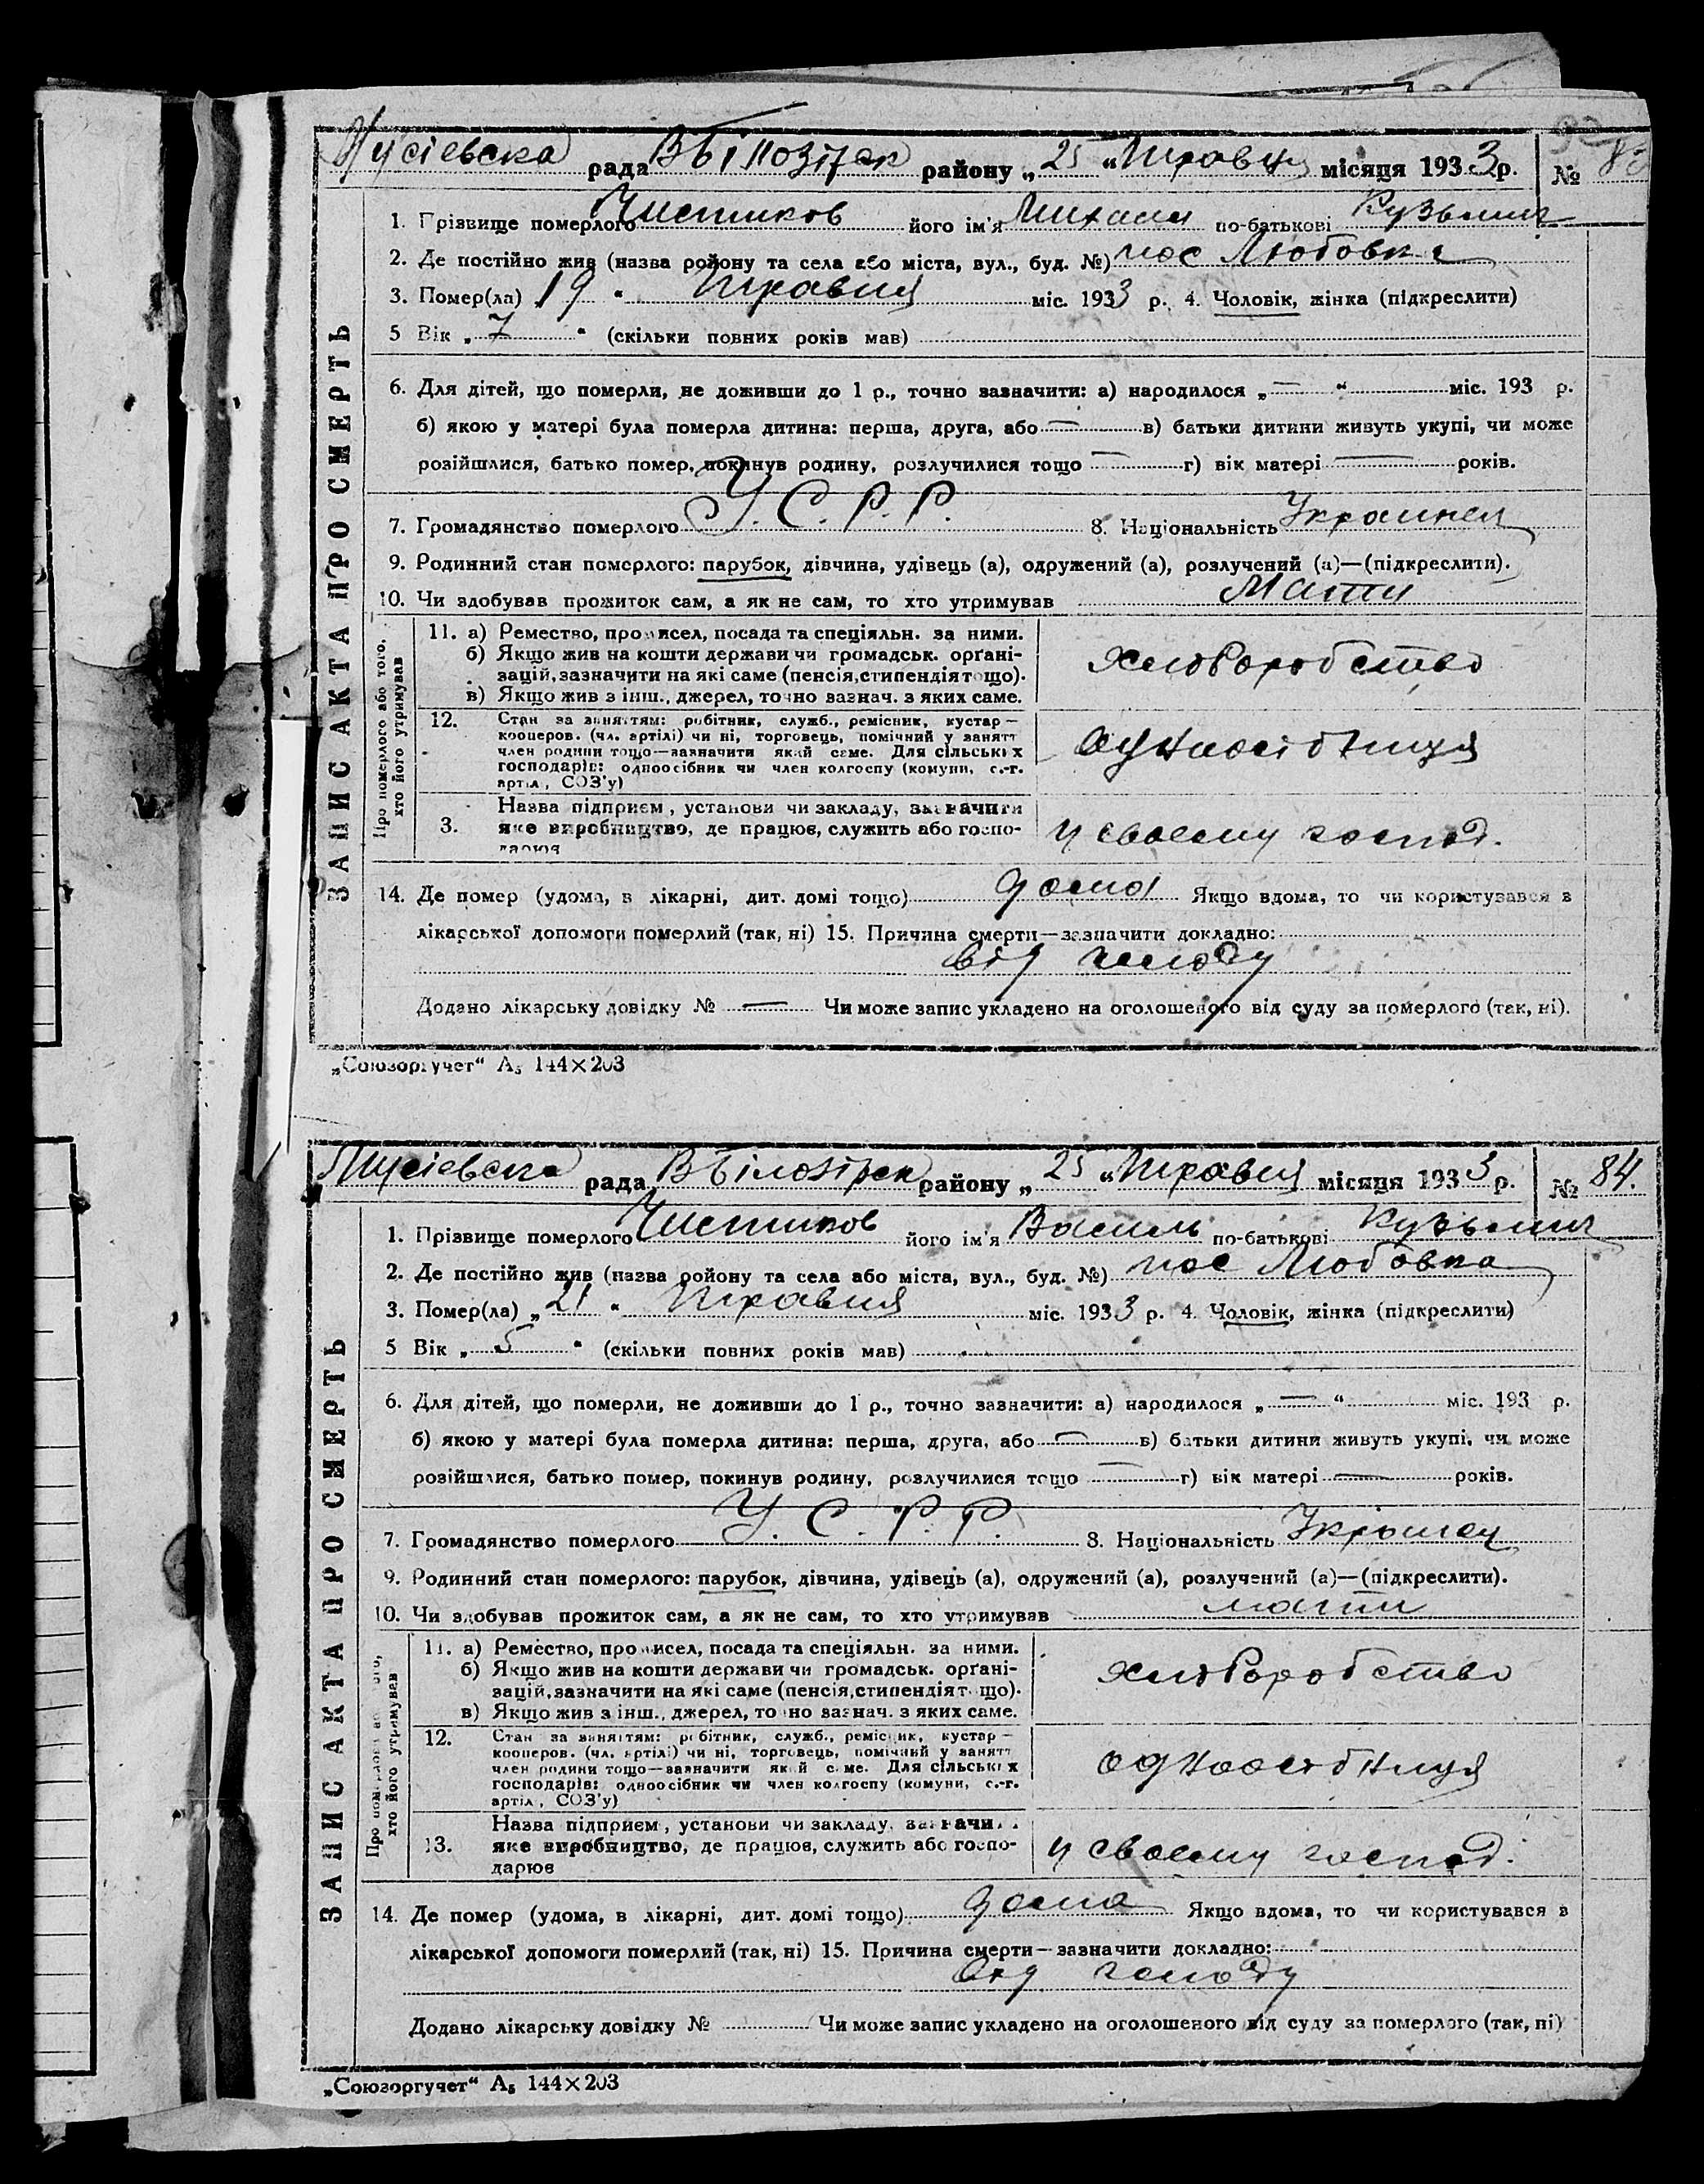 Мусієвська рада ВБілозірск району „25“ Травня місяця 1933 р. № 83
1. Прізвище померлого Чистиков його ім'я Михаил по-батькові Кузьмич
2. Де постійно жив (назва району та села або міста, вул., буд. №) пос Любовка
3. Помер(ла) 19 “ Травня міс. 1933 р. 4. Чоловік, жінка (підкреслити)
5 Вік „ 7 “ (скільки повних років мав)
6. Для дітей, що померли, не доживши до 1 р., точно зазначити: а) народилося „ — “ міс. 193 р.
б) якою у матері була померла дитина: перша, друга, або — в) батьки дитини живуть укупі, чи може
розійшлися, батько помер, покинув родину, розлучилися тощо — г) вік матері — років.
7. Громадянство померлого У. С. Р. Р. 8. Національність Украинец
9. Родинний стан померлого: парубок, дівчина, удівець (а), одружений (а), розлучений (а)—(підкреслити).
10. Чи здобував прожиток сам, а як не сам, то хто утримував Мати
ЗАПИС АКТА ПРО СМЕРТЬ
Про померлого або того,
хто його утримував
11. а) Ремество, промисел, посада та спеціяльн. за ними.
б) Якщо жив на кошти держави чи громадськ. орґані-
зацій, зазначити на які саме (пенсія, стипендія тощо).
в) Якщо жив з інш., джерел, точно вазнач. з яких саме.
хлоборобство
12. Стан за заняттям: робітник, служб., ремісник, кустар—
кооперов. (чл. артілі) чи ні, торговець, помічний у занятт
член родини тощо—зазначити який саме. Для сільських
господарів: одноосібник чи член колгоспу (комуни, с.-г.
артіл., СОЗ'у)
одноосібница
3. Назва підприєм, установи чи закладу, зазначити
яке виробництво, де працює, служить або госпо-
дарює
у своєму господ.
14. Де помер (удома, в лікарні, дит. домі тощо) дома Якщо вдома, то чи користувався з
лікарської допомоги померлий (так, ні) 15. Причина смерти—зазначити докладно:
від голоду
Додано лікарську довідку № — Чи може запис укладено на оголошеного від суду за померлого (так, ні).
„Союзоргучет“ А₅ 144×203
Мусієвська рада ВБілозірск району „25“ Травня місяця 1933 р. № 84.
1. Прізвище померлого Чистиков його ім'я Василь по-батькові Кузьмич
2. Де постійно жив (назва району та села або міста, вул., буд. №) пос Любовка
3. Помер(ла) „ 21 “ Травня міс. 1933 р. 4. Чоловік, жінка (підкреслити)
5 Вік „ 5 “ (скільки повних років мав)
6. Для дітей, що померли, не доживши до 1 р., точно зазначити: а) народилося „ — “ міс. 193 р.
б) якою у матері була померла дитина: перша, друга, або — в) батьки дитини живуть укупі, чи може
розійшлися, батько помер, покинув родину, розлучилися тощо — г) вік матері — років.
7. Громадянство померлого У. С. Р. Р. 8. Національність Українец
9. Родинний стан померлого: парубок, дівчина, удівець (а), одружений (а), розлучений (а)—(підкреслити).
10. Чи здобував прожиток сам, а як не сам, то хто утримував мати
ЗАПИС АКТА ПРО СМЕРТЬ
Про померлого або того,
хто його утримував
11. а) Ремество, промисел, посада та спеціяльн. за ними.
б) Якщо жив на кошти держави чи громадськ. орґані-
зацій, зазначити на які саме (пенсія, стипендія тощо).
в) Якщо жив з інш., джерел, точно вазнач. з яких саме.
хлоборобство
12. Стан за заняттям: робітник, служб., ремісник, кустар—
кооперов. (чл. артілі) чи ні, торговець, помічний у занятт
член родини тощо—зазначити який саме. Для сільських
господарів: одноосібник чи член колгоспу (комуни, с.-г.
артіл., СОЗ'у)
одноосібница
13. Назва підприєм, установи чи закладу, зазначи
яке виробництво, де працює, служить або госпо-
дарює
у своєму господ.
14. Де помер (удома, в лікарні, дит. домі тощо) дома Якщо вдома, то чи користувався з
лікарської допомоги померлий (так, ні) 15. Причина смерти—зазначити докладно:
від голоду
Додано лікарську довідку № Чи може запис укладено на оголошеного від суду за померлого (так, ні)
„Союзоргучет“ А₅ 144×203